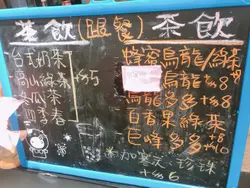 茶飲(跟餐)茶飲
台式奶茶
高山綠茶 +$5
冬瓜茶
四季春
蜂蜜烏龍/綠茶
烏龍 +$8
烏龍多多 +$8
百香果綠茶
巨峰多多 +$10
*加寒天、珍珠
+$6